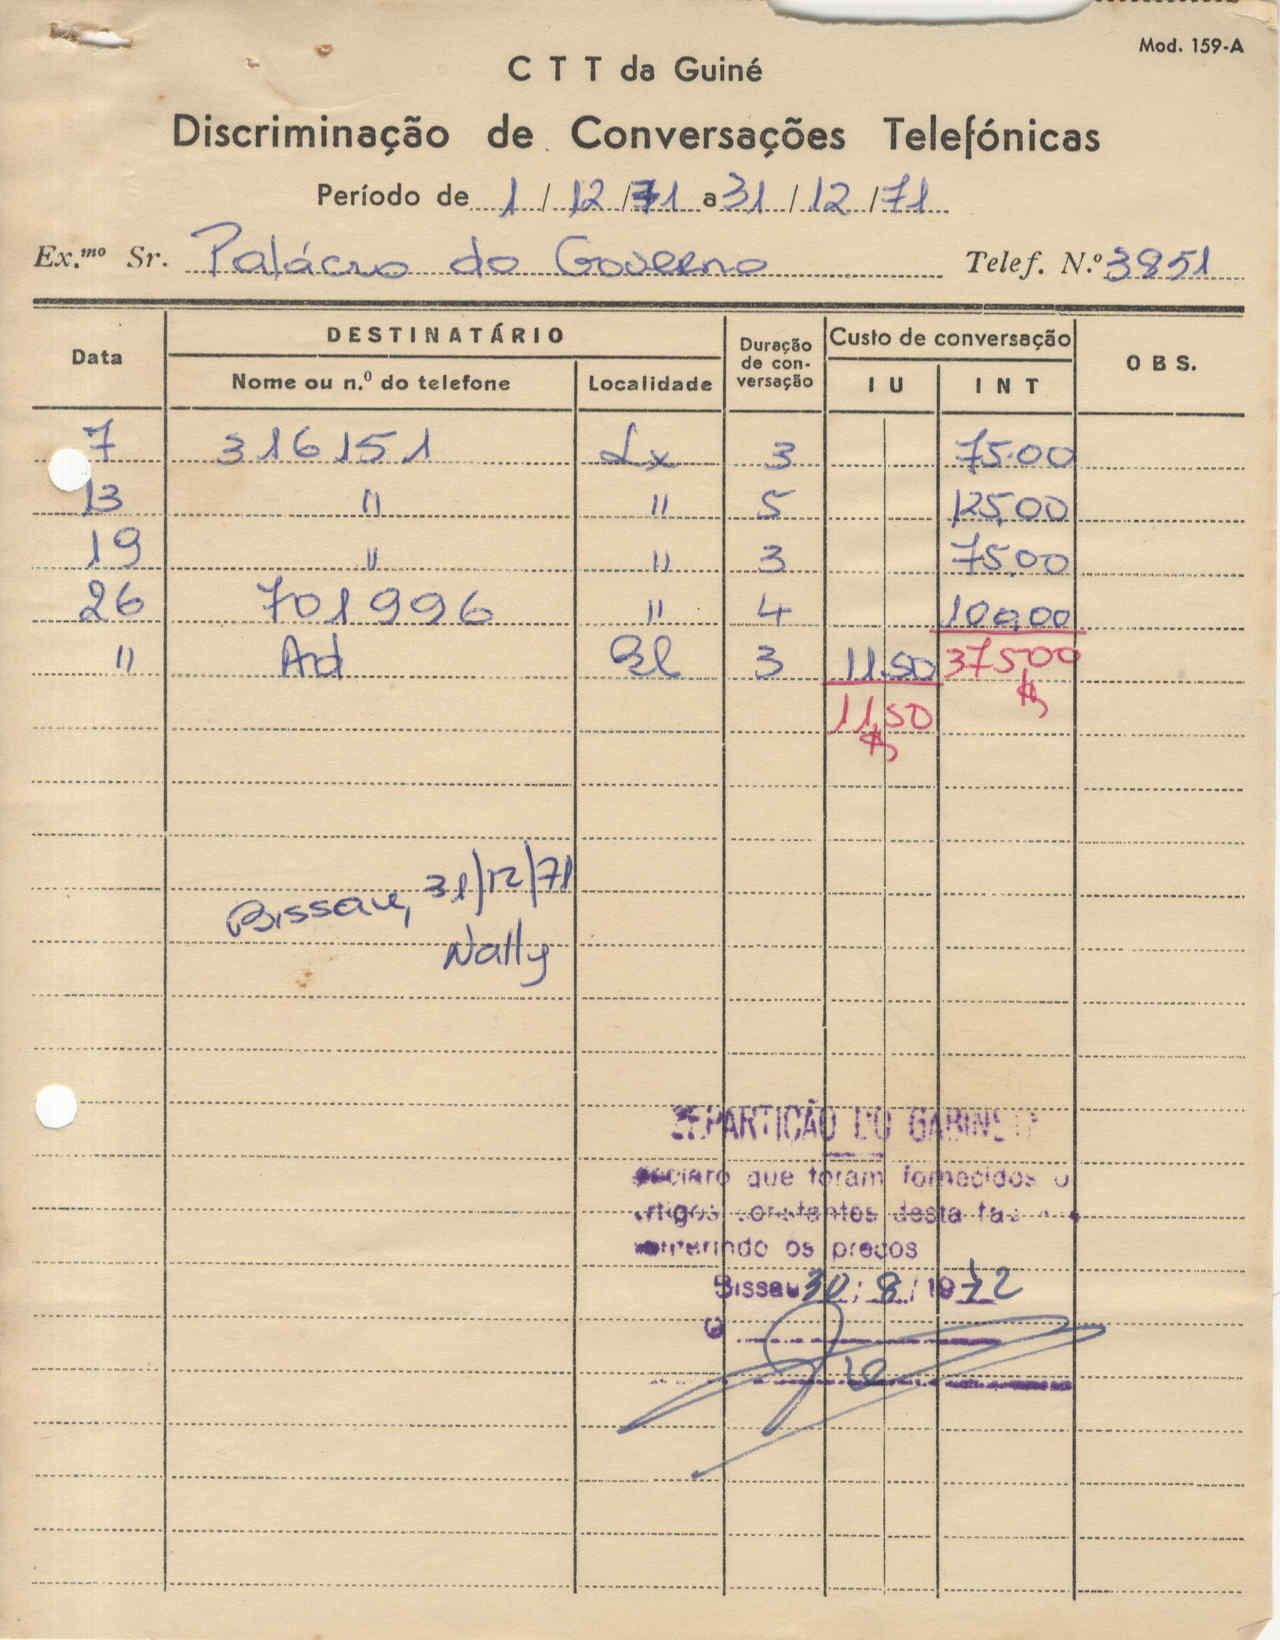 Mod. 159-A
C T T da Guiné
Discriminação de Conversações Telefónicas
Período de 1 / 12 / 71 a 31 / 12 / 71
Ex.mo Sr. Palácio do Governo Telef. N.º 3851
Data DESTINATÁRIO Duração de conversação Custo de conversação OBS.
Nome ou n.º do telefone Localidade I U I N T
7 316151 Lx 3 75.00
13 " " 5 125,00
19 " " 3 75,00
26 701996 " 4 100,00
" Ad 3 11.50 375,00
11,50
Bissau, 31/12/71
Nally
REPARTIÇÃO DO GABINETE
Declaro que foram fornecidos o
artigos constantes desta
conferindo os preços
Bissau 30 / 8 / 1972
O